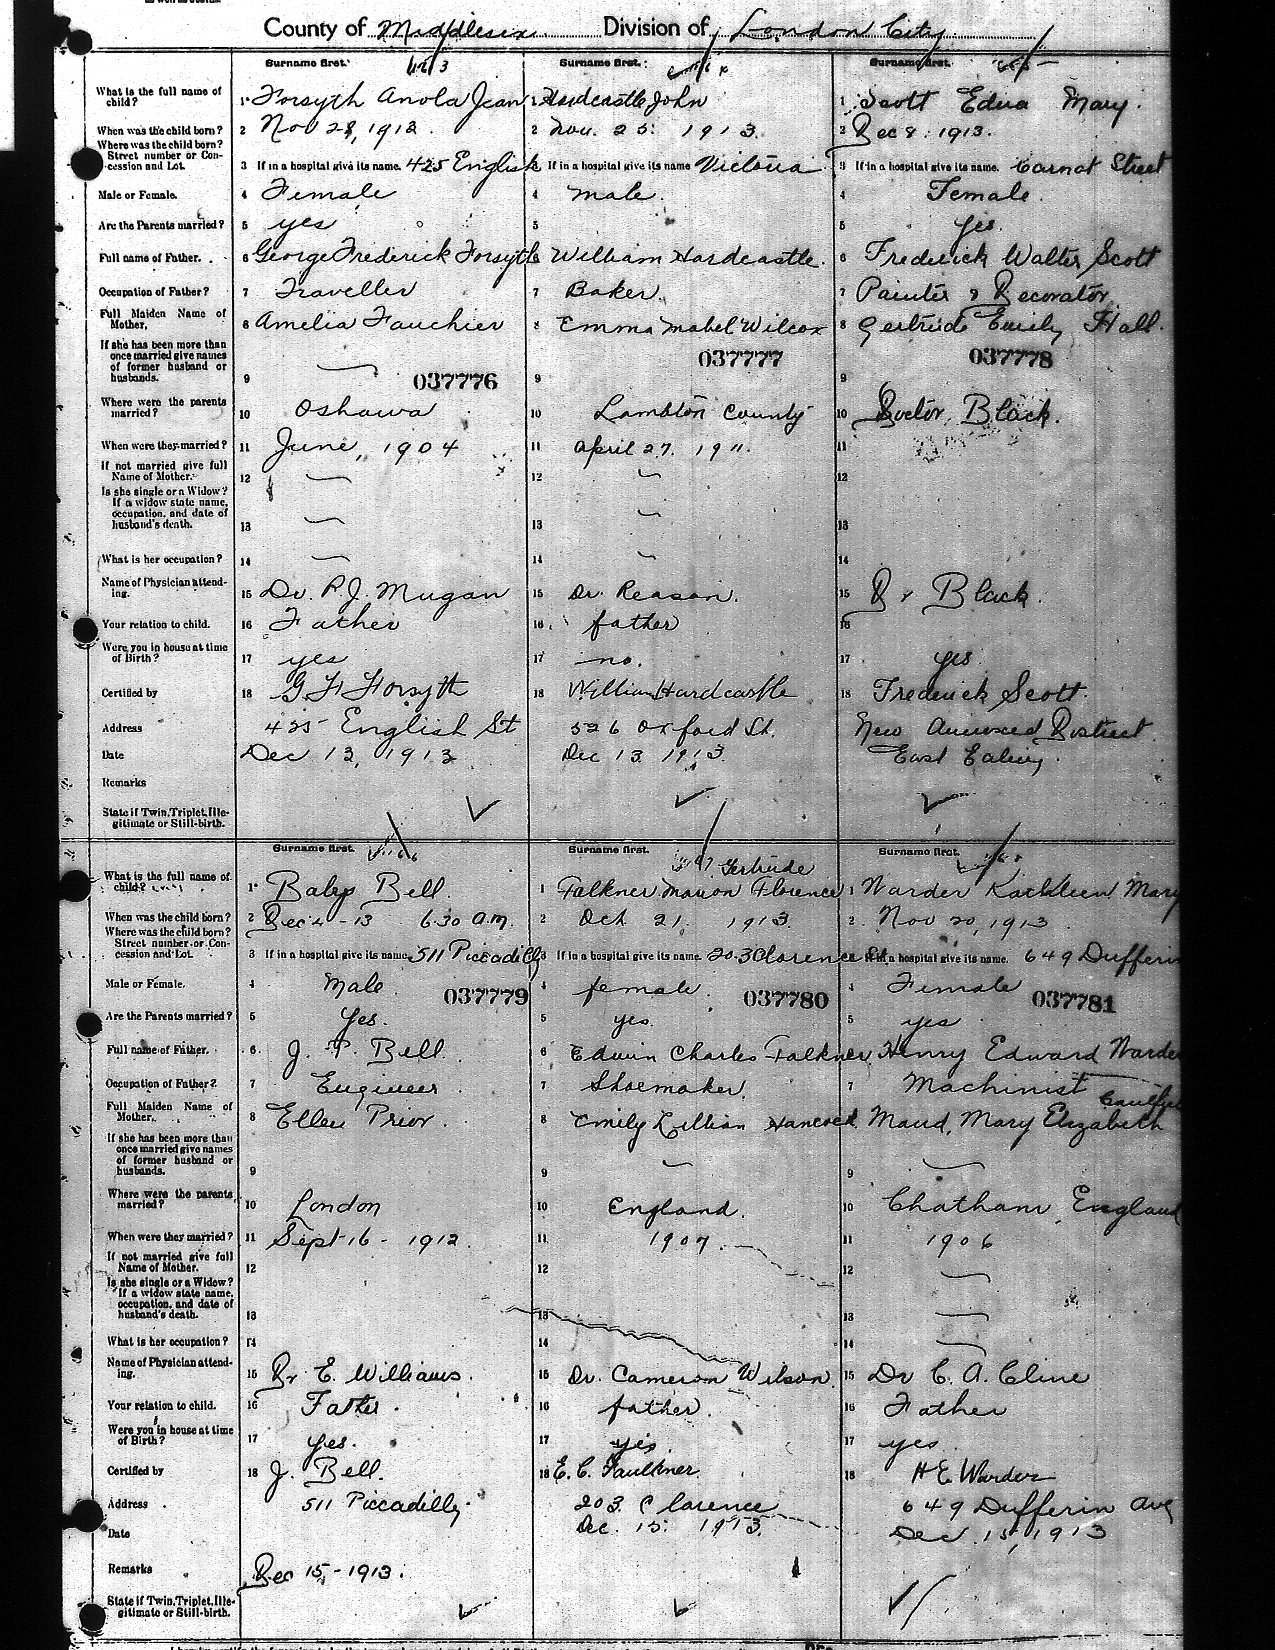 County of Middlesex Division of London City
Surname first. Surname first. Surname first.
What is the full name of child? 1 Forsyth Anola Jean 1 Hardcastle John 1 Scott Edna Mary.
When was the child born? 2 Nov 28, 1913. 2 Nov. 25. 1913. 2 Dec 8. 1913.
Where was the child born?
Street number or Concession and Lot. 3 If in a hospital give its name. 425 English 3 If in a hospital give its name Victoria 3 If in a hospital give its name. Carnot Street
Male or Female. 4 Female 4 male. 4 Female.
Are the Parents married? 5 yes 5 5 Yes.
Full name of Father. 6 George Frederick Forsyth 6 William Hardcastle. 6 Frederick Walter Scott
Occupation of Father? 7 Traveller 7 Baker. 7 Painter & Decorator
Full Maiden Name of Mother. 8 Amelia Fauchier 8 Emma Mabel Wilcox 8 Gertrude Emily Hall.
If she has been more than once married give names of former husband or husbands. 9 037776 9 037777 9 037778
Where were the parents married? 10 Oshawa 10 Lambton County 10 Doctor Black.
When were they married? 11 June, 1904 11 April 27. 1911. 11
If not married give full Name of Mother. 12 12 12
Is she single or a Widow? If a widow state name, occupation, and date of husband's death. 13 13 13
What is her occupation? 14 14 14
Name of Physician attending. 15 Dr. P. J. Mugan 15 Dr. Reason. 15 Dr Black.
Your relation to child. 16 Father 16 father 16
Were you in house at time of Birth? 17 yes 17 no. 17 yes
Certified by 18 G F Forsyth 18 William Hardcastle 18 Frederick Scott.
Address 425 English St 526 Oxford St. New Annexed District
Date Dec 12, 1913 Dec 13. 1913. East Ealing.
Remarks
State if Twin, Triplet, Illegitimate or Still-birth.
Surname first. Surname first. Surname first.
Gertrude
What is the full name of child? 1 Baby Bell 1 Falkner Marion Florence 1 Warder Kathleen Mary
When was the child born? 2 Dec 4 - 13 6.30 a.m. 2 Oct. 21. 1913. 2 Nov 20, 1913
Where was the child born?
Street number or Concession and Lot. 3 If in a hospital give its name 511 Piccadilly 3 If in a hospital give its name. 203 Clarence If in a hospital give its name. 649 Dufferin
Male or Female. 4 Male 037779 4 female. 037780 4 Female 037781
Are the Parents married? 5 Yes. 5 yes. 5 yes
Full name of Father. 6 J. P. Bell 6 Edwin Charles Falkner Henry Edward Warder
Occupation of Father? 7 Engineer 7 Shoemaker. 7 Machinist
Full Maiden Name of Mother. 8 Ellen Prior. 8 Emily Lillian Hancock. Maud, Mary Elizabeth
If she has been more than once married give names of former husband or husbands. 9 9 9
Where were the parents married? 10 London 10 England. 10 Chatham, England
When were they married? 11 Sept 16 - 1912. 11 1907. 11 1906
If not married give full Name of Mother. 12 12 12
Is she single or a Widow? If a widow state name, occupation, and date of husband's death. 13 13 13
What is her occupation? 14 14 14
Name of Physician attending. 15 Dr E. Williams. 15 Dr. Cameron Wilson 15 Dr C. A. Cline
Your relation to child. 16 Father. 16 father. 16 Father
Were you in house at time of Birth? 17 yes. 17 yes. 17 yes.
Certified by 18 J. Bell. 18 E. C. Faulkner. 18 H E Warder
Address 511 Piccadilly. 203 Clarence 649 Dufferin Ave
Date Dec. 15. 1913. Dec. 15, 1913
Remarks Dec 15, - 1913.
State if Twin, Triplet, Illegitimate or Still-birth.